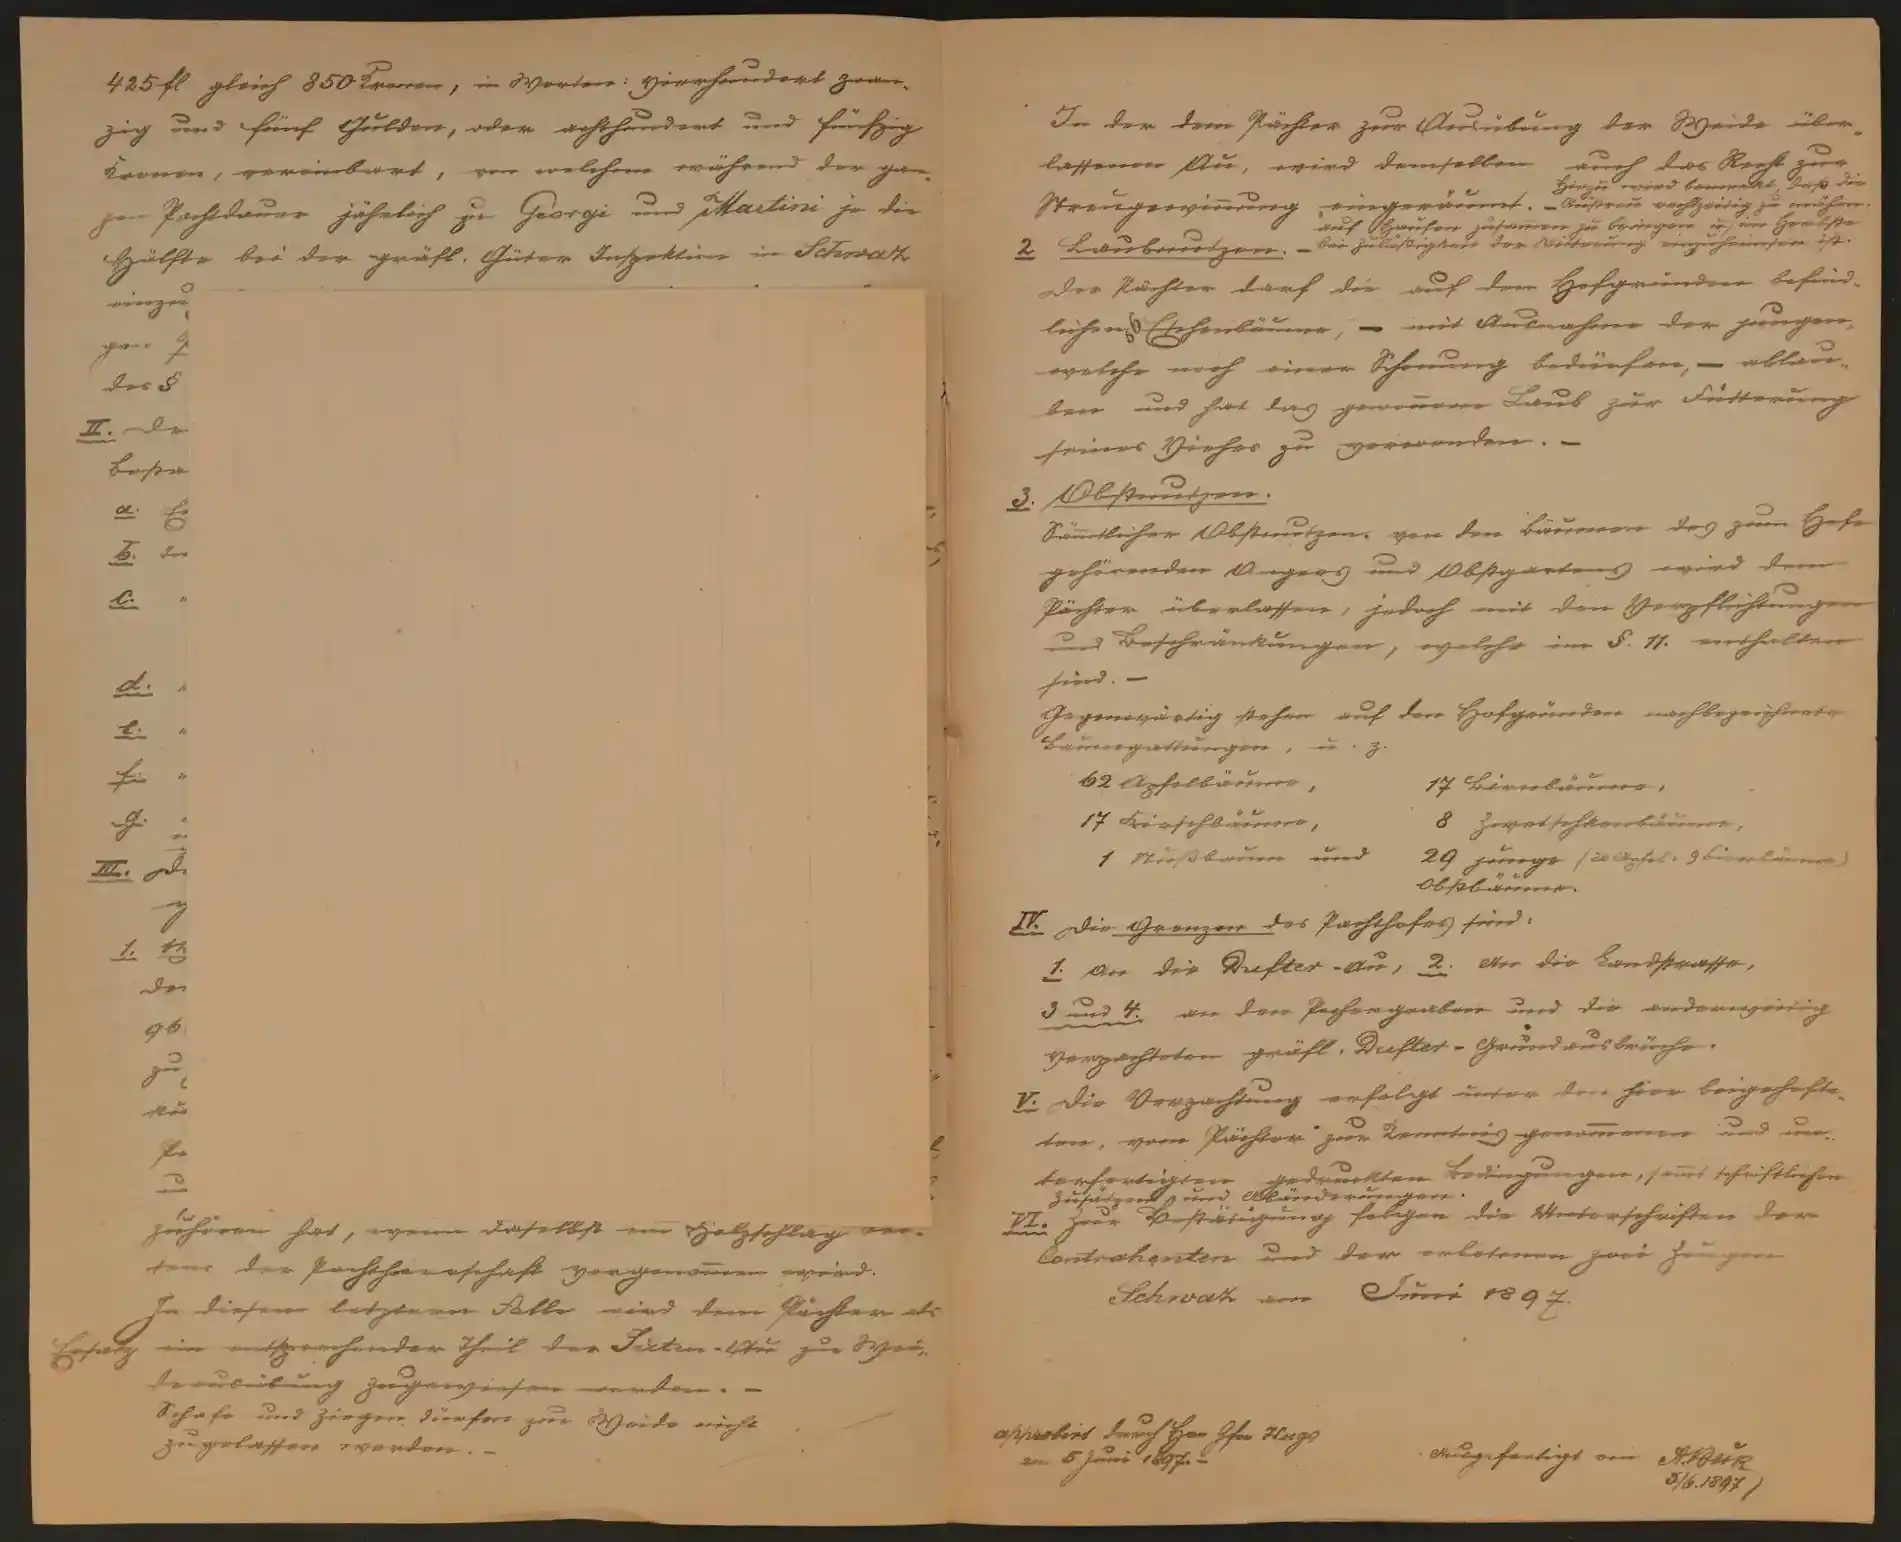 425 fl gleich 850 Kronen, in Worten: Vierhundert zwan-
zig und fünf Gulden, oder achthundert und fünfzig
Kronen, vereinbart, von welchem während der gan-
zen Pachtdauer jährlich zu Georgi und Martini je die
Hälfte bei der gräfl. Güter Inspektion in Schwaz
einzu
gen
des §
II. De
Besta
a.
b. der
c. "
d. "
e. "
f. "
g. "
III. De
1.
der
96
zu
Pa
u
zuhören hat, wenn daselbst ein Holzschlag sei-
tens der Pachtherrschaft vorgenommen wird.
In diesem letztern Falle wird dem Pächter als
Ersatz ein entsprechender Theil der Au zur Wei-
deausübung zugewiesen werden. -
Schafe und Ziegen dürfen zur Weide nicht
zugelassen werden. -
In der dem Pächter zur Ausübung der Weide über-
lassenen Au, wird demselben auch das Recht zur
Streugewinnung eingeräumt. - Hiezu wird bemerkt, daß die
Austreu rechtzeitig zu mähen,
auf Haufen zusammen zu bringen u. im Herbste
bei Zulässigkeit der Witterung einzuheimsen ist.
2 Laubnutzen. -
Der Pächter darf die auf den Hofgründen befind-
lichen Eschenbäume, - mit Ausnahme der jungen,
welche noch einer Schonung bedürfen, - ablau-
ben und hat das gewonnene Laub zur Fütterung
seines Viehes zu verwenden. -
3. Obstnutzen.
Sämtlicher Obstnutzen von den Bäumen des zum Hofe
gehörenden Angers und Obstgartens wird dem
Pächter überlassen, jedoch mit den Verpflichtungen
und Beschränkungen, welche im §. 11. enthalten
sind. -
Gegenwärtig stehen auf den Hofgründen nachbezeichnete
Baumgattungen, u. z.
62 Apfelbäume, 17 Birnbäume,
17 Kirschbäume, 8 Zwetschkenbäume,
1 Nußbaum und 29 junge (20 Apfel- 9 Birnbäume)
Obstbäume.
IV. Die Grenzen des Pachthofes sind:
1. An die Dufter-Au, 2. An die Landstrasse,
3 und 4. an den Pochergraben und die anderweitig
verpachteten gräfl. Dufter-Grundausbrüche.
V. Die Verpachtung erfolgt unter den hier beigehefte-
ten, vom Pächter zur Kenntnis genommenen und un-
terfertigten gedruckten Bedingungen, sammt schriftlichen
Zusätzen und Abänderungen.
VI. Zur Bestätigung folgen die Unterschriften der
Contrahenten und der erbetenen zwei Zeugen
Schwaz am Juni 1897.
approbirt durch Hrn Gfen Hugo
am 5 Juni 1897. -
Ausgefertigt von
5/6.1897